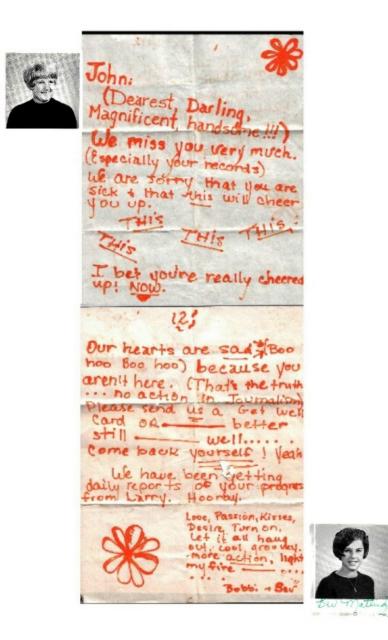 John:
(Dearest, Darling,
Magnificent, handsome!!!)
We miss you very much.
(Especially your records)
We are sorry that you are
sick & that this will cheer
you up.
THIS
THIS THIS THIS.
I bet you're really cheered
up! NOW.
Our hearts are sad (Boo
hoo Boo hoo) because you
aren't here. (That's the truth
... no action in Journalism)
Please send us a Get well
card OR better
still well......
Come back yourself! Yeah
We have been getting
daily reports of your progress
from Larry. Hooray.
Love, Passion, Kisses,
Desire, Turn on,
Let it all hang
out, cool, groovey,
more action, light
my fire
....
Bobbi & Bev
Bev